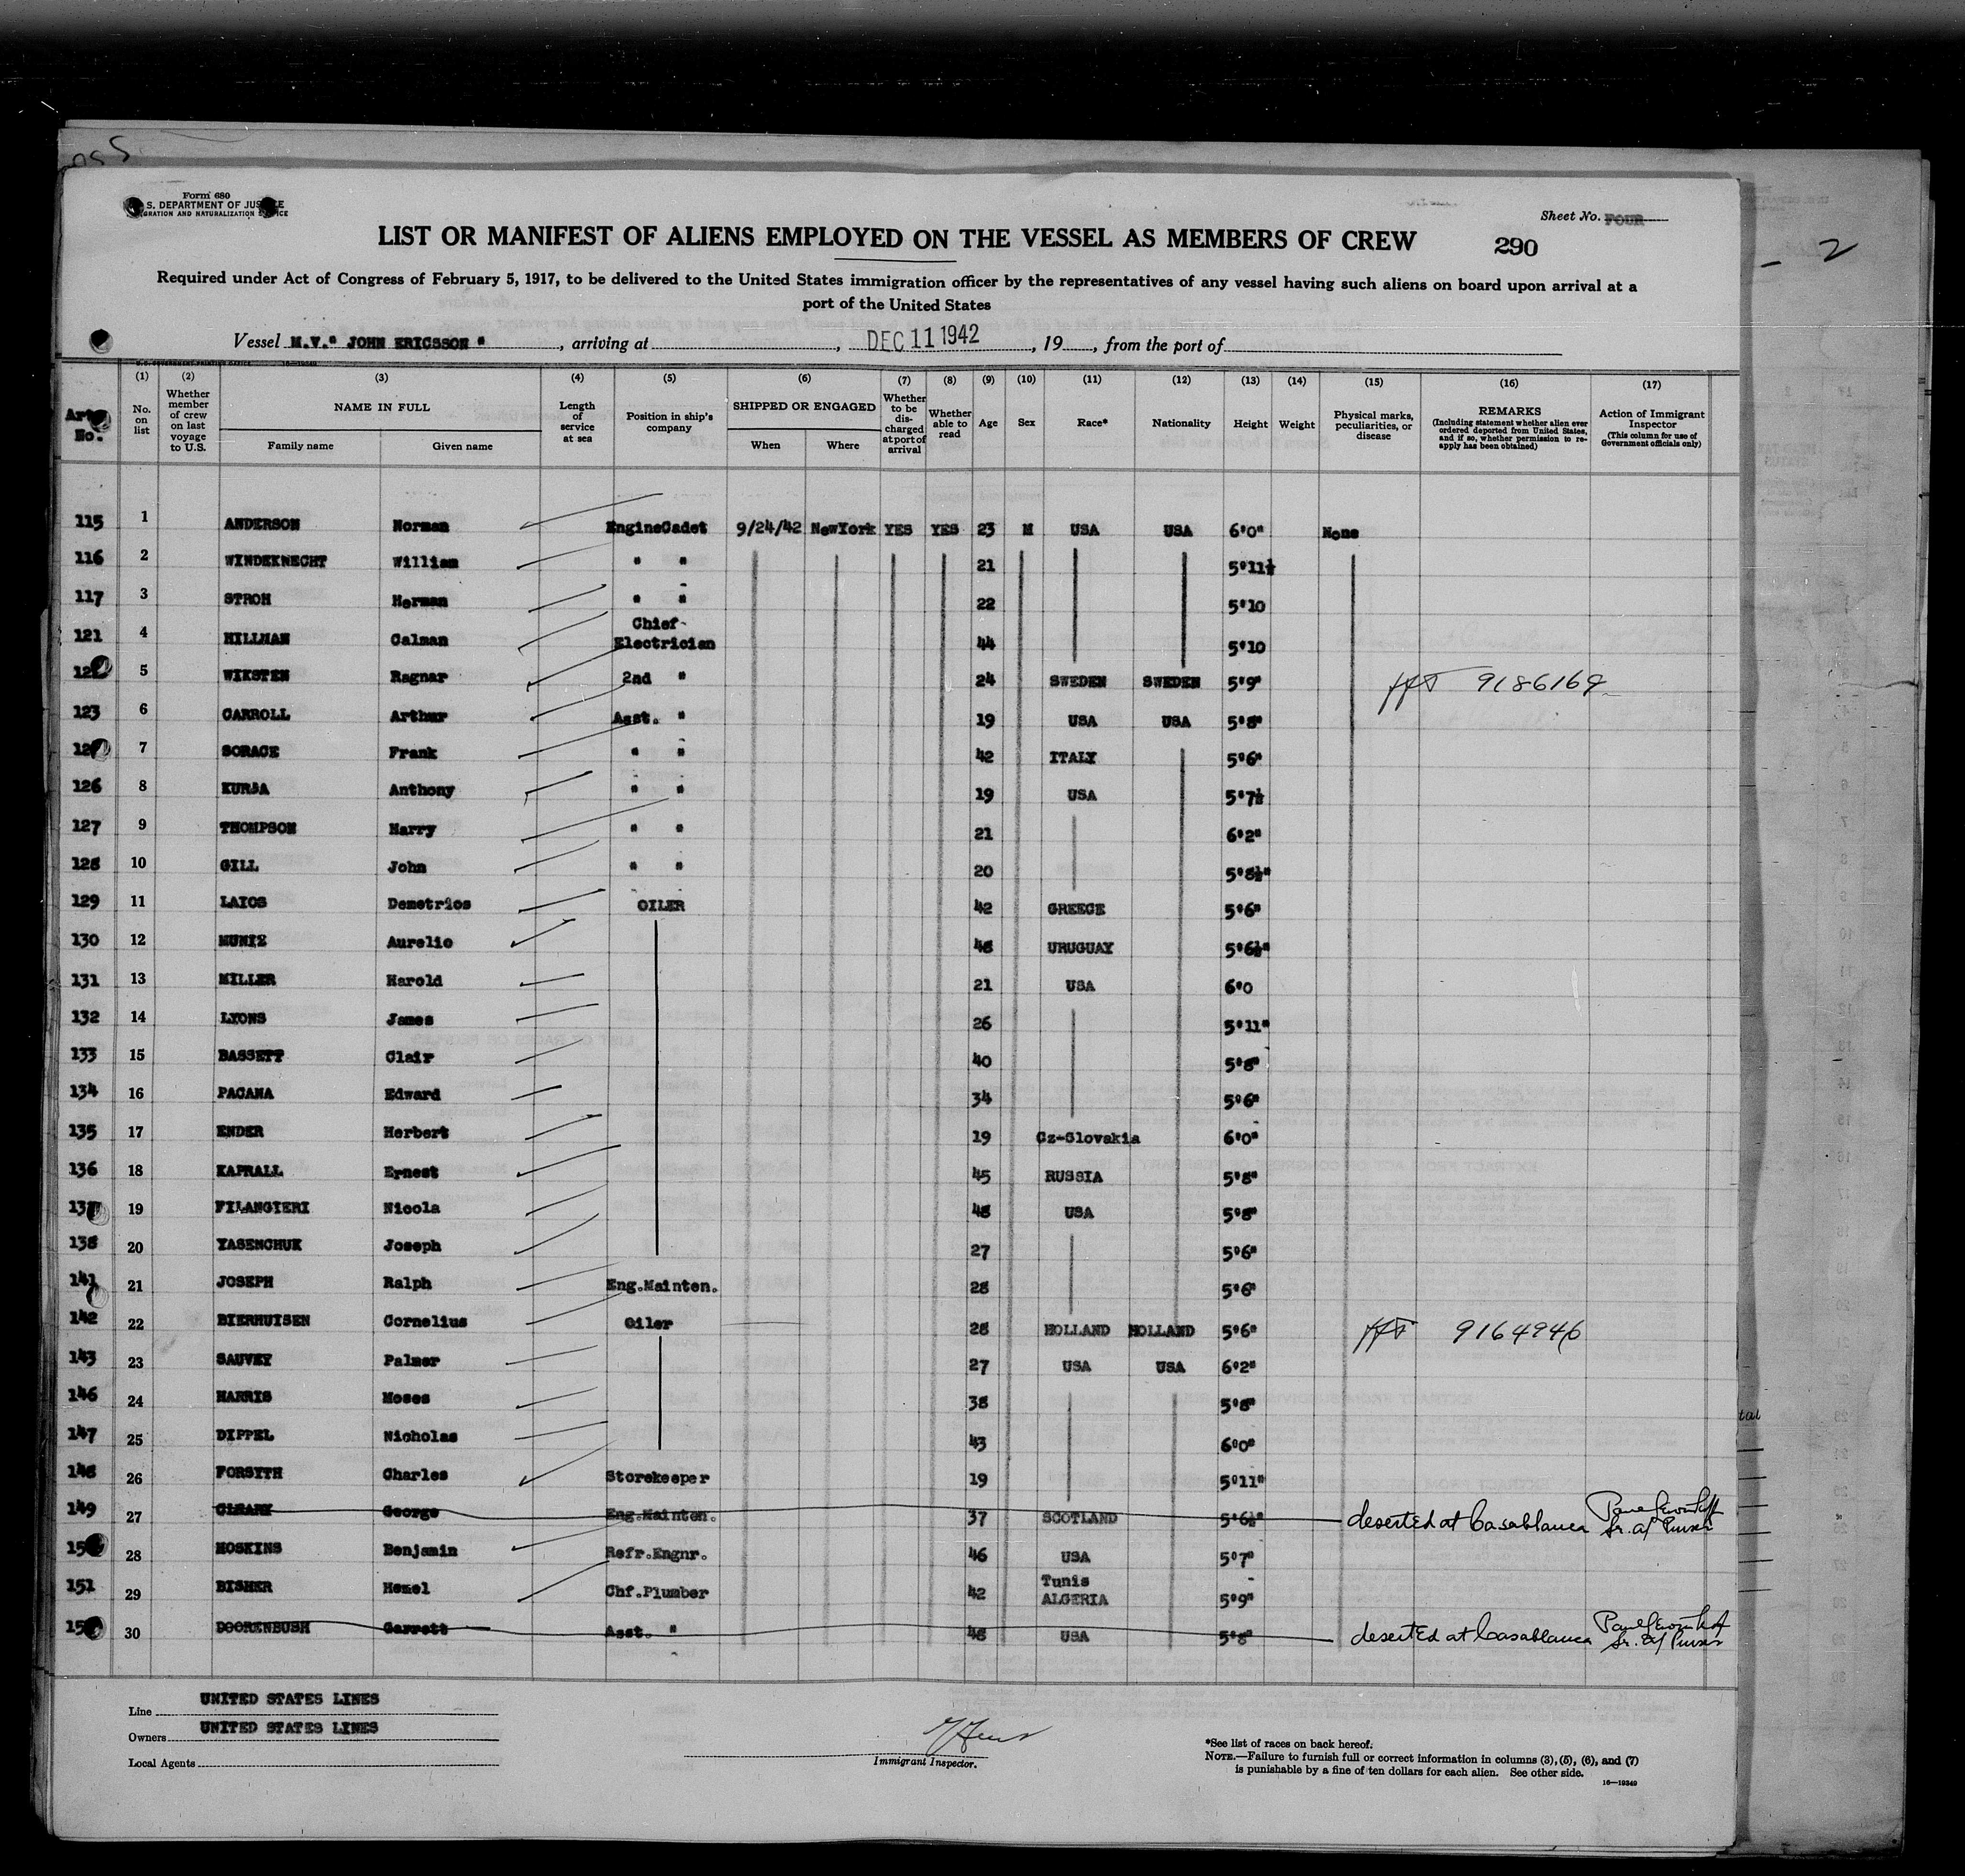 Form 680
S. DEPARTMENT OF JUSTICE
IGRATION AND NATURALIZATION SERVICE
Sheet No. FOUR
LIST OR MANIFEST OF ALIENS EMPLOYED ON THE VESSEL AS MEMBERS OF CREW
290
Required under Act of Congress of February 5, 1917, to be delivered to the United States immigration officer by the representatives of any vessel having such aliens on board upon arrival at a
port of the United States
Vessel M.V." JOHN ERICSSON ", arriving at , DEC 11 1942, 19 , from the port of
Art. No. (1) No. on list (2) Whether member of crew on last voyage to U.S. (3) NAME IN FULL Family name Given name (4) Length of service at sea (5) Position in ship's company (6) SHIPPED OR ENGAGED When Where (7) Whether to be discharged at port of arrival (8) Whether able to read (9) Age (10) Sex (11) Race* (12) Nationality (13) Height (14) Weight (15) Physical marks, peculiarities, or disease (16) REMARKS (Including statement whether alien ever ordered deported from United States, and if so, whether permission to re-apply has been obtained) (17) Action of Immigrant Inspector (This column for use of Government officials only)
115 1 ANDERSON Norman EngineCadet 9/24/42 NewYork YES YES 23 M USA USA 6'0" None
116 2 WINDEKNECHT William " " 21 5'11½
117 3 STROH Herman " " 22 5'10
121 4 HILLMAN Calman Chief Electrician 44 5'10
5 WIKSTEN Ragnar 2nd " 24 SWEDEN SWEDEN 5'9" 9186169
123 6 CARROLL Arthur Asst. " 19 USA USA 5'8"
7 SORACE Frank " " 42 ITALY 5'6"
126 8 KURJA Anthony " " 19 USA 5'7½
127 9 THOMPSON Harry " " 21 6'2"
128 10 GILL John " " 20 5'8½"
129 11 LAIOS Demetrios OILER 42 GREECE 5'6"
130 12 MUNIZ Aurelio 48 URUGUAY 5'6½"
131 13 MILLER Harold 21 USA 6'0
132 14 LYONS James 26 5'11"
133 15 BASSETT Clair 40 5'8"
134 16 PAGANA Edward 34 5'6"
135 17 ENDER Herbert 19 Cz-Slovakia 6'0"
136 18 KAPRALL Ernest 45 RUSSIA 5'8"
137 19 FILANGIERI Nicola 48 USA 5'8"
138 20 YASENCHUK Joseph 27 5'6"
141 21 JOSEPH Ralph Eng.Mainten. 28 5'6"
142 22 BIERHUISEN Cornelius Oiler 28 HOLLAND HOLLAND 5'6" 9164946
143 23 SAUVEY Palmer 27 USA USA 6'2"
146 24 HARRIS Moses 38 5'8"
147 25 DIPPEL Nicholas 43 6'0"
148 26 FORSYTH Charles Storekeeper 19 5'11"
149 27 CLEARY George Eng.Mainten. 37 SCOTLAND 5'6½" deserted at Casablanca Sr. Purser
28 HOSKINS Benjamin Refr.Engnr. 46 USA 5'7"
151 29 BISHER Hemel Chf.Plumber 42 Tunis ALGERIA 5'9"
30 DOORENBUSH Garrett Asst. " 48 USA 5'8" deserted at Casablanca Sr. Purser
Line UNITED STATES LINES
Owners UNITED STATES LINES
Local Agents
Immigrant Inspector.
*See list of races on back hereof.
NOTE.—Failure to furnish full or correct information in columns (3), (5), (6), and (7)
is punishable by a fine of ten dollars for each alien. See other side.
16—19349